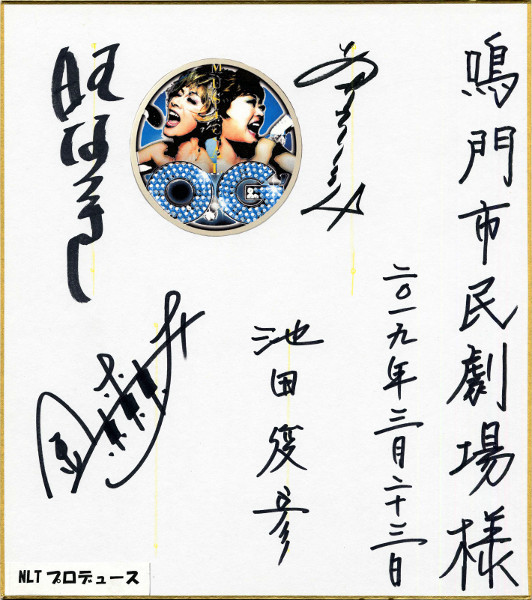 鳴門市民劇場様
二〇一九年三月二十三日
池田俊彦
旺なつき
NLT プロデュース